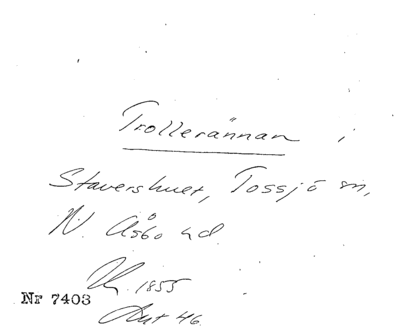 Trollerännan i
Stavershult, Tossjö sn,
N. Åsbo hd.
1855
Nr 7403
Ant 46